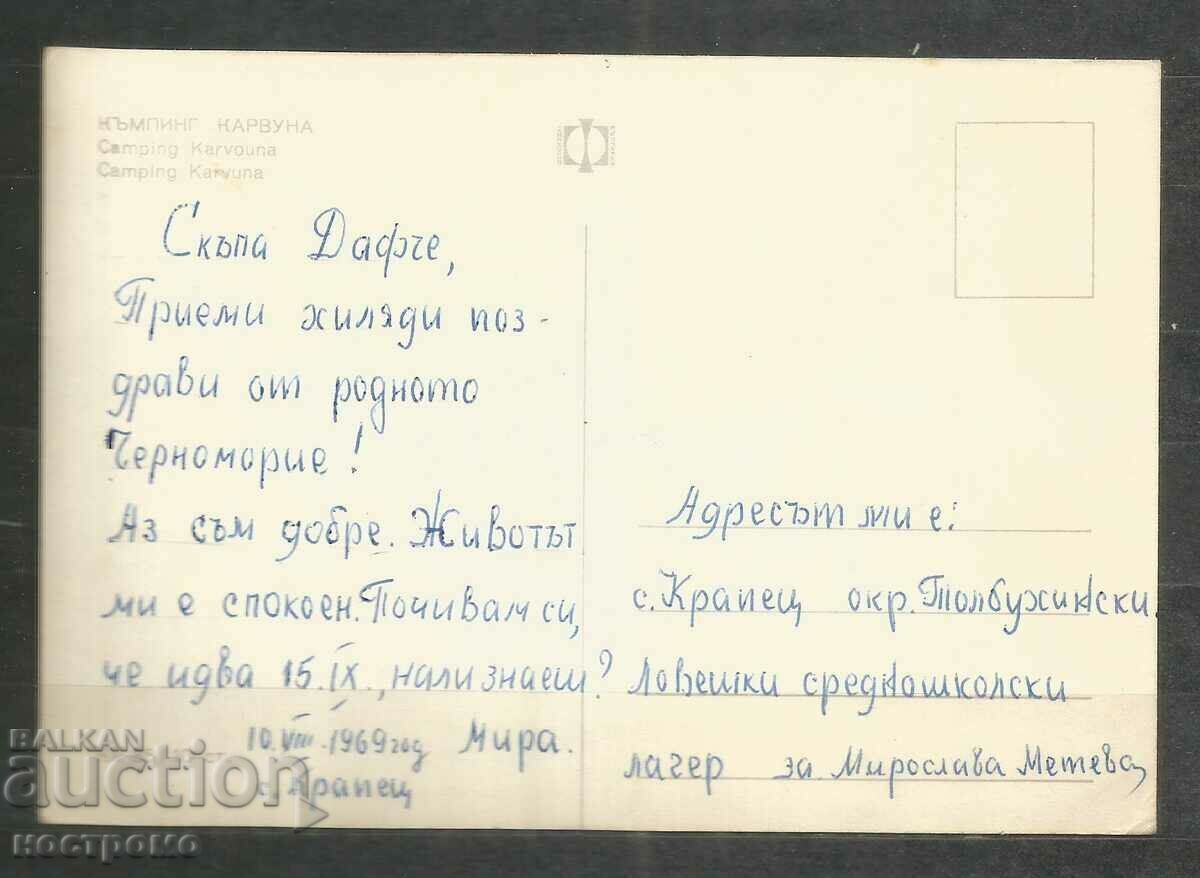 КЪМПИНГ КАРВУНА
Camping Karvouna
Camping Karvuna
Скъпа Дафче,
Приеми хиляди поз-
драви от родното
Черноморие!
Аз съм добре. Животът
ми е спокоен. Почивам си,
че идва 15.IX., нали знаеш?
10.VIII.1969 год Мира.
с. Крапец
Адресът ми е:
с. Крапец окр. Толбухински
Ловешки средношколски
лагер за Мирослава Метева
BALKAN
auction
КОСТРОМО